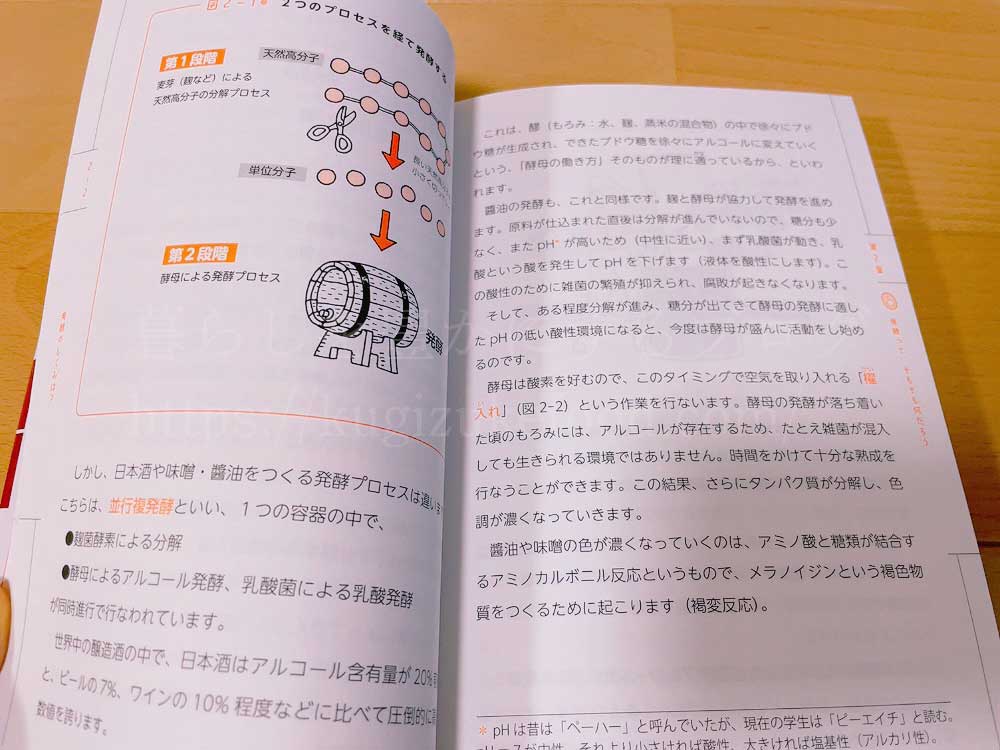 2つのプロセスを経て発酵する
第1段階
麦芽(麹など)による
天然高分子の分解プロセス
天然高分子
単位分子
第2段階
酵母による発酵プロセス
発酵
しかし、日本酒や味噌・醤油をつくる発酵プロセスは違い
こちらは、並行複発酵といい、1つの容器の中で、
●麹菌酵素による分解
●酵母によるアルコール発酵、乳酸菌による乳酸発酵
が同時進行で行なわれています。
世界中の醸造酒の中で、日本酒はアルコール含有量が20%
と、ビールの7%、ワインの10%程度などに比べて圧倒的に
数値を誇ります。
これは、醪(もろみ:水、麹、蒸米の混合物)の中で徐々にブド
ウ糖が生成され、できたブドウ糖を徐々にアルコールに変えていく
という、「酵母の働き方」そのものが理に適っているから、といわ
れます。
醤油の発酵も、これと同様です。麹と酵母が協力して発酵を進め
ます。原料が仕込まれた直後は分解が進んでいないので、糖分も少
なく、またpH*が高いため(中性に近い)、まず乳酸菌が動き、乳
酸という酸を発生してpHを下げます(液体を酸性にします)。こ
の酸性のために雑菌の繁殖が抑えられ、腐敗が起きなくなります。
そして、ある程度分解が進み、糖分が出てきて酵母の発酵に適し
たpHの低い酸性環境になると、今度は酵母が盛んに活動をし始め
るのです。
酵母は酸素を好むので、このタイミングで空気を取り入れる「櫂
入れ」(図2-2)という作業を行ないます。酵母の発酵が落ち着い
た頃のもろみには、アルコールが存在するため、たとえ雑菌が混入
しても生きられる環境ではありません。時間をかけて十分な熟成を
行なうことができます。この結果、さらにタンパク質が分解し、色
調が濃くなっていきます。
醤油や味噌の色が濃くなっていくのは、アミノ酸と糖類が結合す
るアミノカルボニル反応というもので、メラノイジンという褐色物
質をつくるために起こります(褐変反応)。
* pHは昔は「ペーハー」と呼んでいたが、現在の学生は「ピーエイチ」と読む。
それより小さければ酸性、大きければ塩基性(アルカリ性)。
第2章